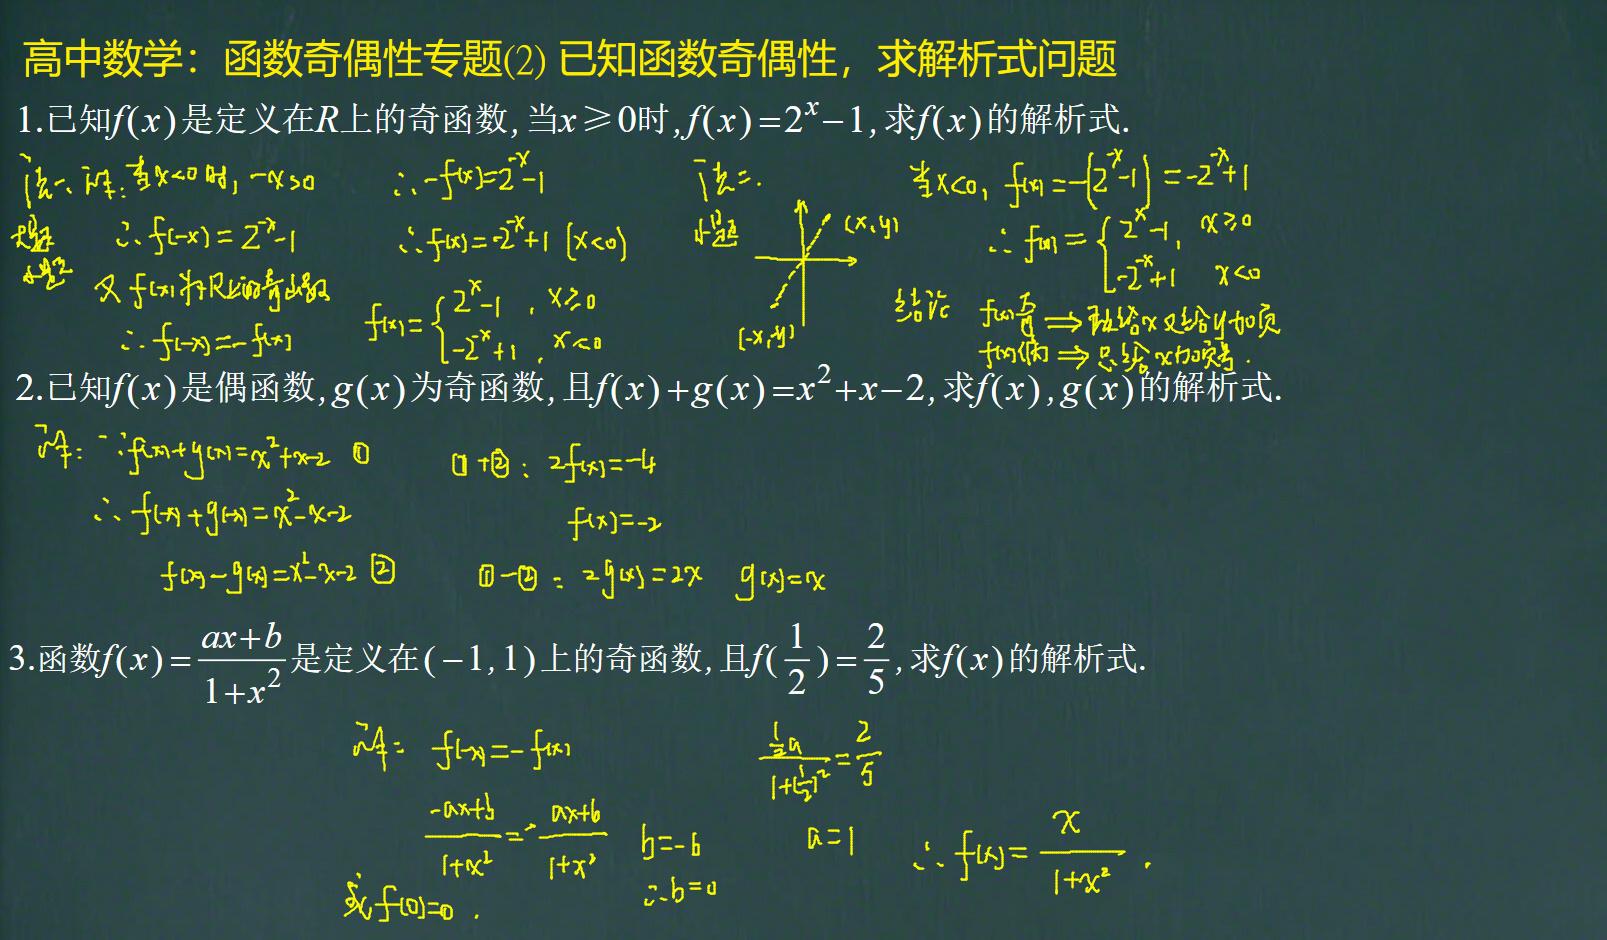 高中数学：函数奇偶性专题(2) 已知函数奇偶性，求解析式问题
1.已知f(x)是定义在R上的奇函数,当x≥0时,f(x)=2^x−1,求f(x)的解析式.
法一、解:当x<0时, −x>0
大题
小题
∴f(−x)=2^{-x}−1
又f(x)为R上的奇函数
∴f(−x)=−f(x)
∴−f(x)=2^{-x}−1
∴f(x)=−2^{-x}+1 (x<0)
f(x)={2^x−1, x≥0
−2^{-x}+1, x<0
法二.
小题
(x,y)
(-x,-y)
当x<0, f(x)=−(2^{-x}−1)=−2^{-x}+1
∴f(x)={2^x−1, x≥0
−2^{-x}+1 x<0
结论 f(x)奇⇒既给x又给y加负
f(x)偶⇒只给x加负号.
2.已知f(x)是偶函数,g(x)为奇函数,且f(x)+g(x)=x²+x−2,求f(x),g(x)的解析式.
解:∵f(x)+g(x)=x²+x−2 ①
∴f(−x)+g(−x)=x²−x−2
f(x)−g(x)=x²−x−2 ②
①+②: 2f(x)=−4
f(x)=−2
①−②: 2g(x)=2x g(x)=x
3.函数f(x)=(ax+b)/(1+x²)是定义在(−1,1)上的奇函数,且f(1/2)=2/5,求f(x)的解析式.
解: f(−x)=−f(x)
(−ax+b)/(1+x²)=−(ax+b)/(1+x²)
b=−b
∴b=0
或f(0)=0.
(½a)/(1+(½)²)=2/5
a=1
∴f(x)=x/(1+x²).